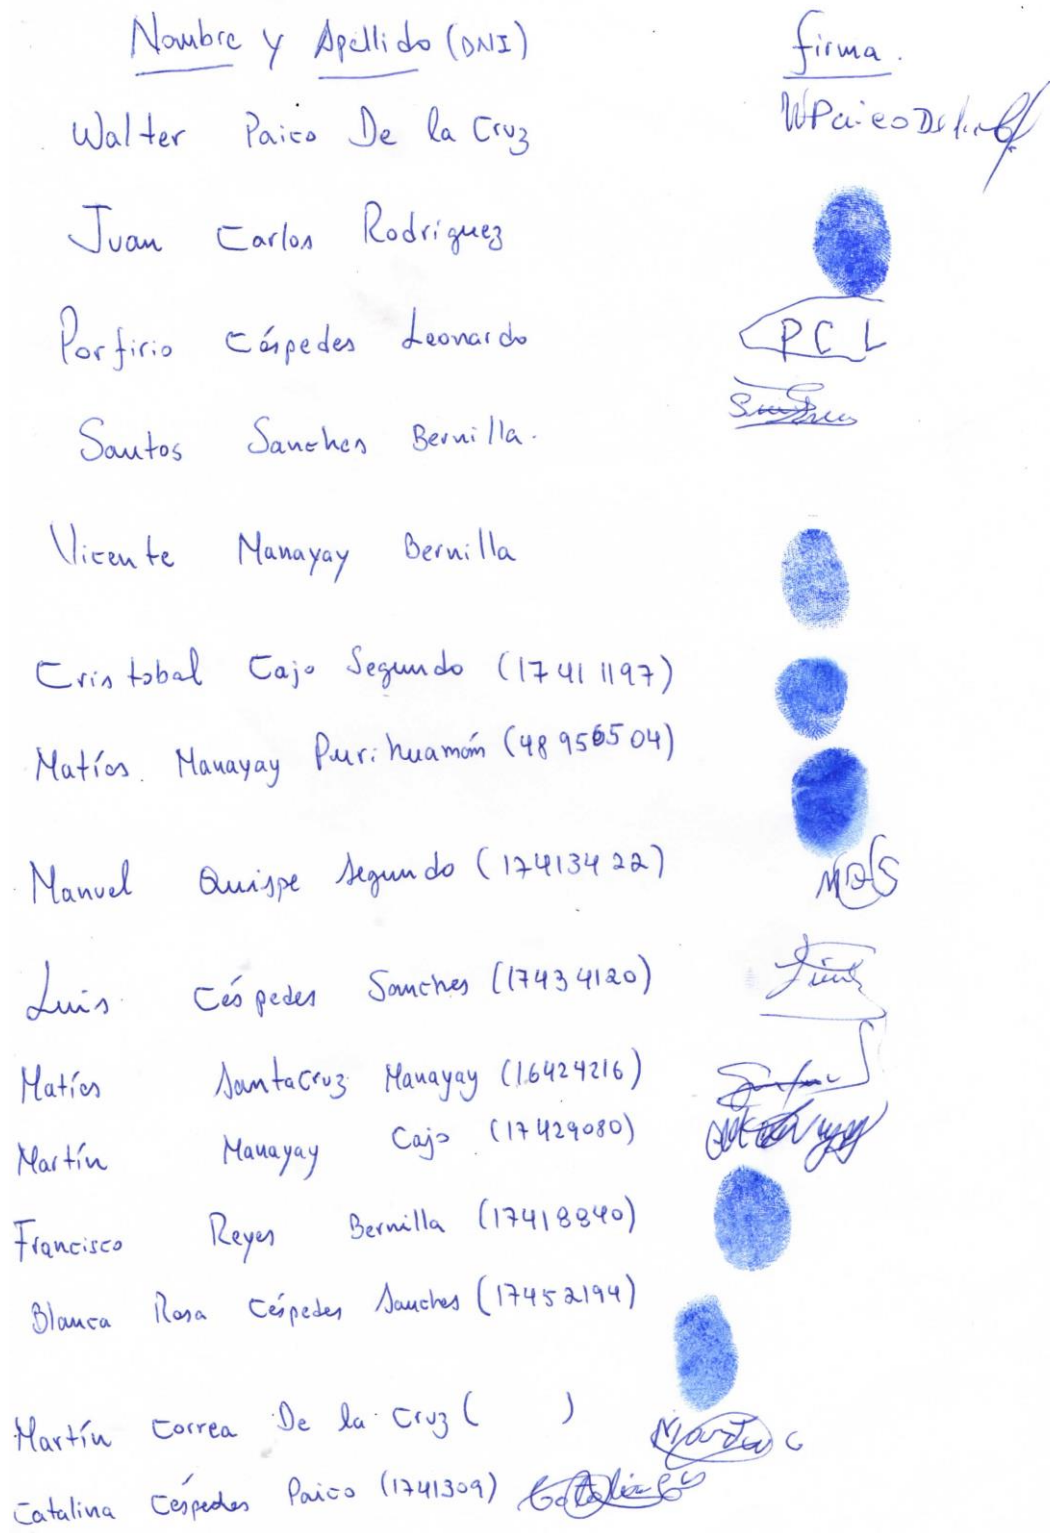 Nombre y Apellido (DNI) firma.
Walter Paico De la Cruz WPaicoDe la
Juan Carlos Rodríguez
Porfirio Céspedes Leonardo PCL
Santos Sanches Bernilla.
Vicente Manayay Bernilla
Cristobal Cajo Segundo (17411197)
Matías. Manayay Purihuamán (48956504)
Manuel Quispe Segundo (17413422) MQS
Luis Céspedes Sanches (17434120)
Matías SantaCruz Manayay (16424216)
Martín Manayay Cajo (17429080)
Francisco Reyes Bernilla (17418840)
Blanca Rosa Céspedes Sanches (17452194)
Martín Correa De la Cruz ( ) Martin C
Catalina Céspedes Paico (1741309) Catalina